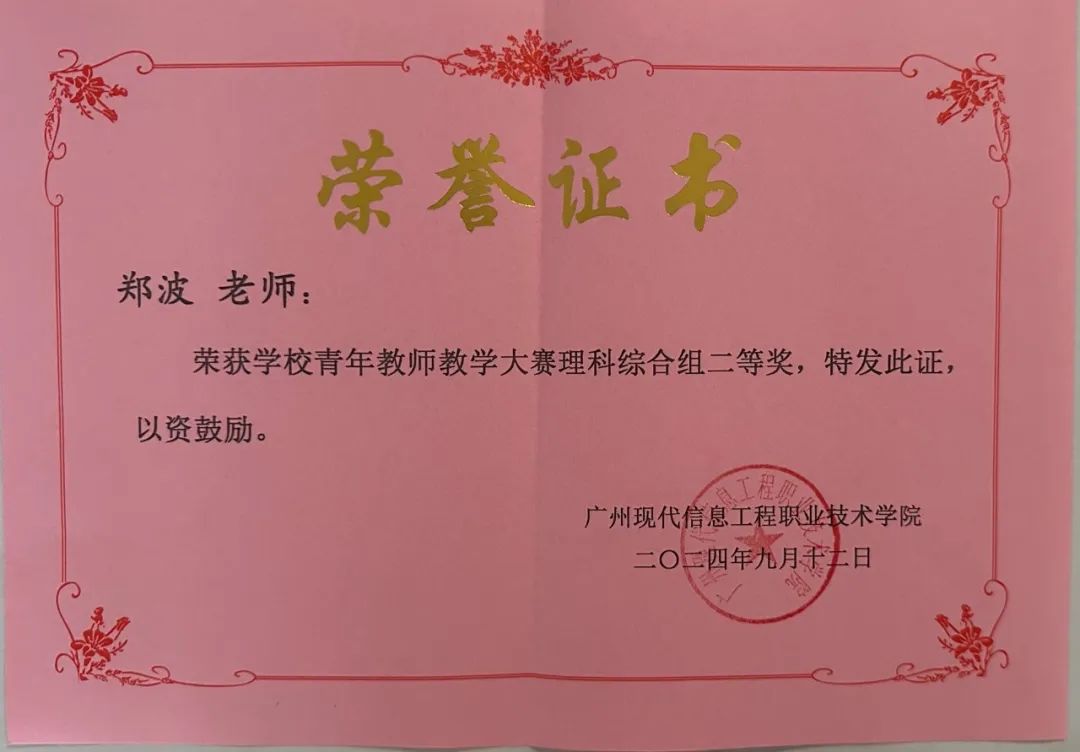 荣誉证书
郑波 老师：
荣获学校青年教师教学大赛理科综合组二等奖，特发此证，
以资鼓励。
广州现代信息工程职业技术学院
二〇二四年九月十二日
广州现代信息工程职业技术学院